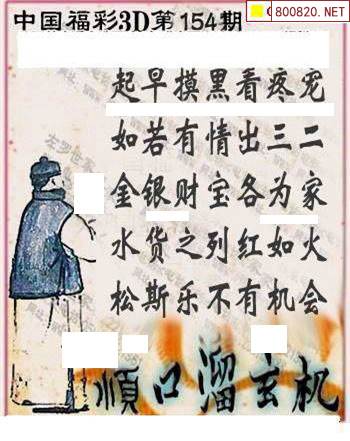 中国福彩3D第154期
800820.NET
起早摸黑看疼宠
如若有情出三二
金银财宝各为家
水货之列红如火
松斯乐不有机会
顺口溜玄机